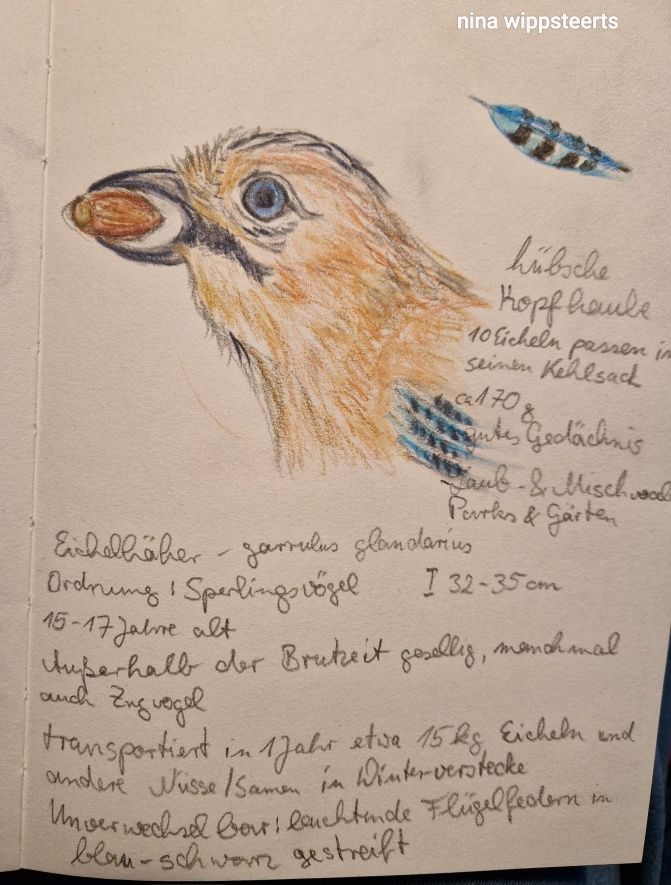 nina wippsteerts
hübsche
Kopfhaube
10 Eicheln passen in
seinen Kehlsack
ca 170 g
gutes Gedächnis
Laub- & Mischwald
Parks & Gärten
Eichelhäher - garrulus glandarius
Ordnung: Sperlingsvögel I 32-35 cm
15-17 Jahre alt
Außerhalb der Brutzeit gesellig, manchmal
auch Zugvogel
transportiert in 1 Jahr etwa 15 kg Eicheln und
andere Nüsse/Samen in Winterverstecke
Unverwechselbar: leuchtende Flügelfedern in
blau-schwarz gestreift